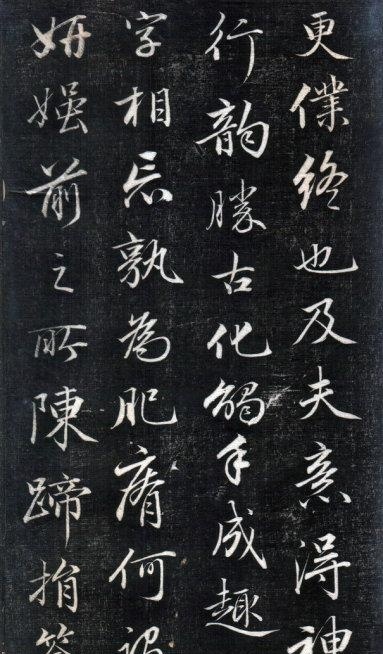 更僕終也及夫意得神
行韵勝古化觸手成趣
字相忘孰為肥瘠何
妍媸前之所陳蹄捐